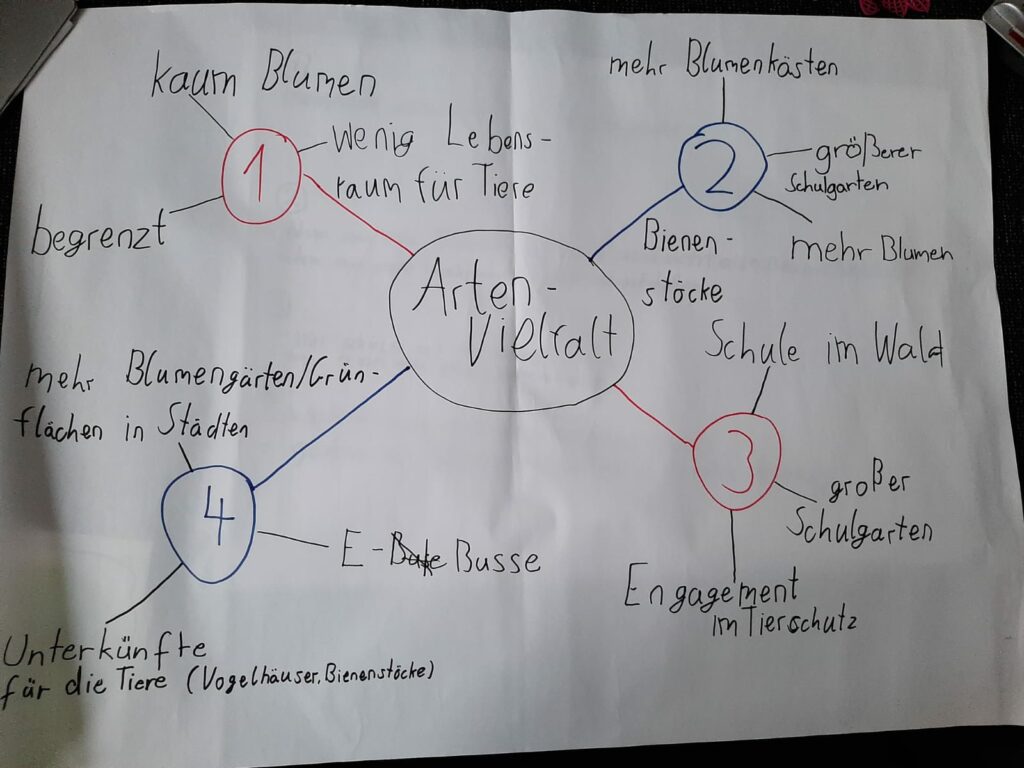 kaum Blumen
wenig Lebens-
raum für Tiere
1
begrenzt
mehr Blumenkästen
2
größerer
Schulgarten
mehr Blumen
Bienen-
stöcke
Arten-
Vielfalt
Schule im Wald
3
großer
Schulgarten
Engagement
im Tierschutz
mehr Blumengärten/Grün-
flächen in Städten
4
E-Busse
Unterkünfte
für die Tiere (Vogelhäuser, Bienenstöcke)